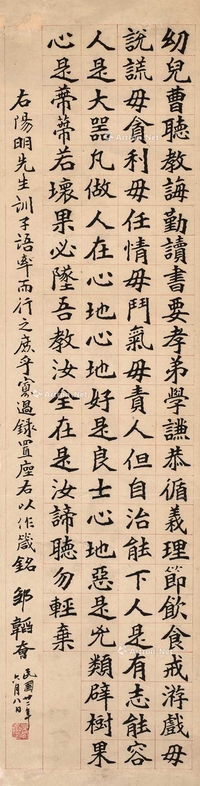 幼兒曹聽教誨勤讀書要孝弟學謙恭循義理節飲食戒游戲毋
說謊毋貪利毋任情毋鬥氣毋責人但自治能下人是有志能容
人是大器凡做人在心地心地好是良士心地惡是兇類辟樹果
心是蒂蒂若壞果必墜吾教汝全在是汝諦聽勿輕棄
右陽明先生訓子語率而行之庶乎寡過錄置座右以作箴銘 鄒韜奮
民國廿二年
六月八日